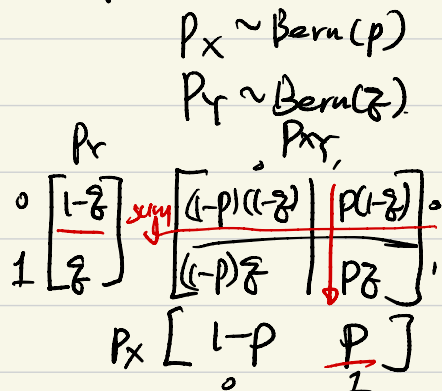 P_X ~ Bern(p)
P_Y ~ Bern(q)
P_Y P_XY
0 1
0 [1-q] sum [(1-p)(1-q) | p(1-q)] 0
1 [q] [(1-p)q | pq] 1
P_X [ 1-p p ]
0 1